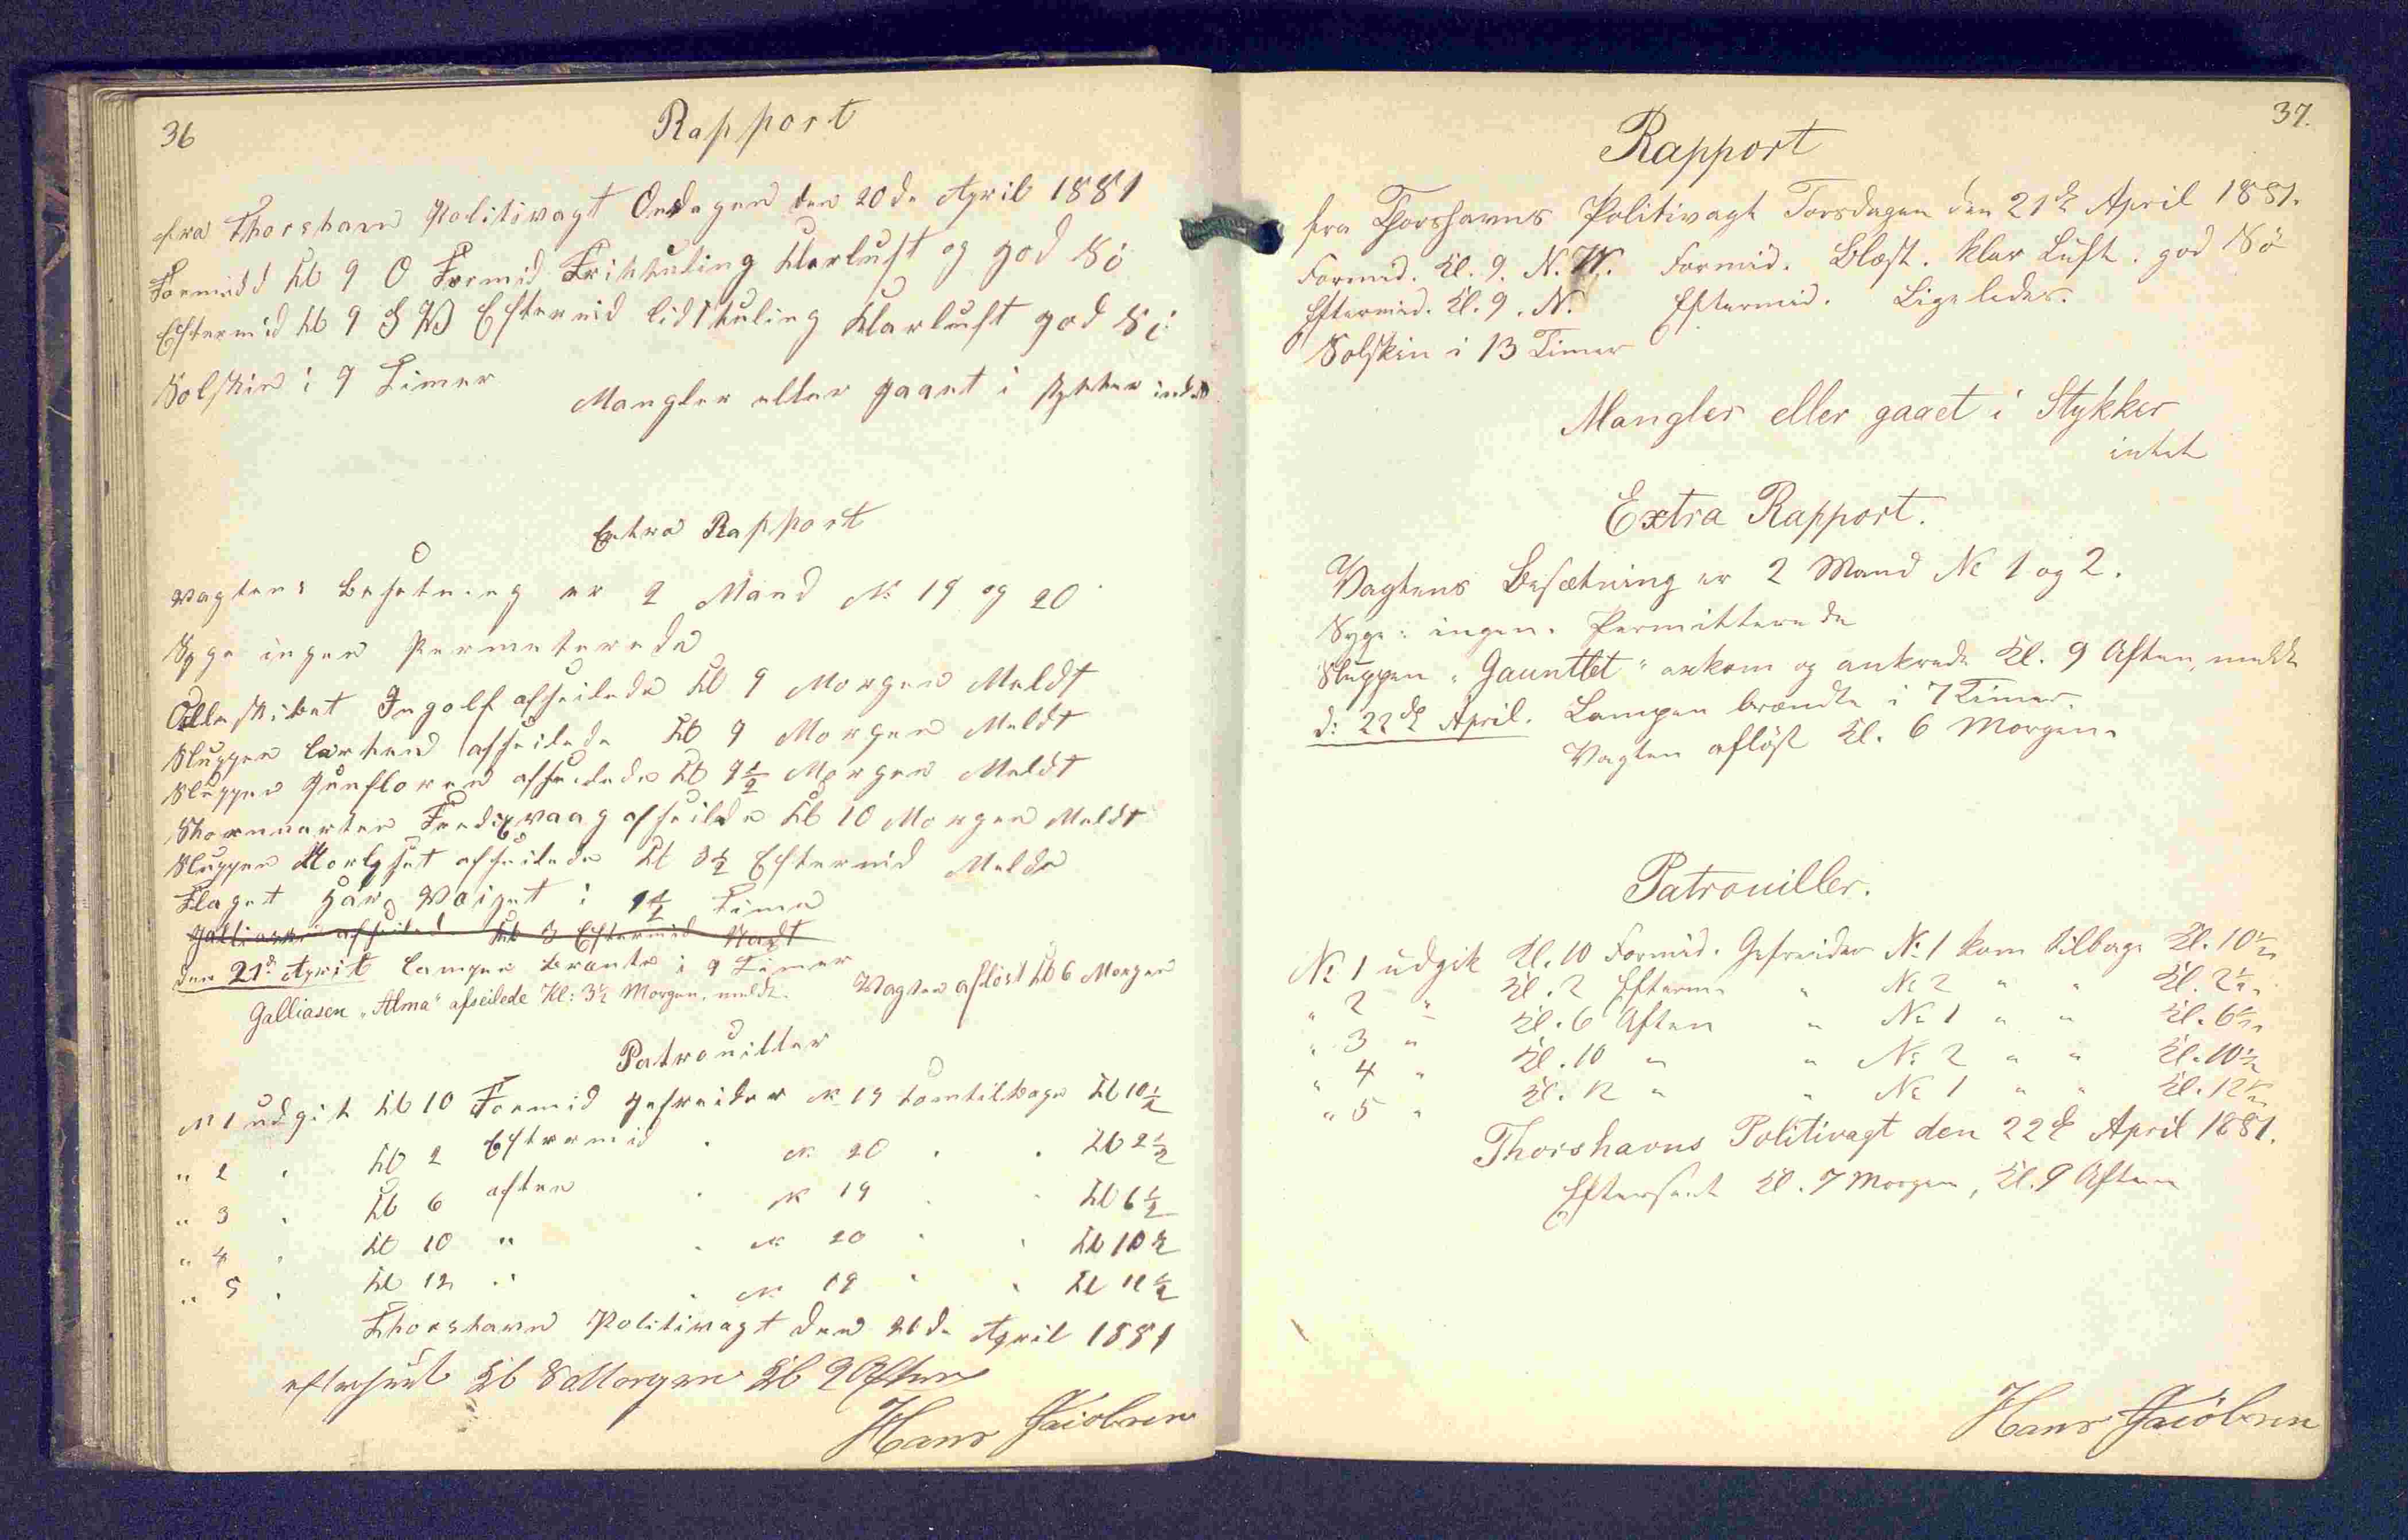 36
Rapport
fra Thorshavn Politivagt Onsdagen den 20de April 1881
Formidd Kl 9 O Formid Friskkuling Klarluft og god Sö
Eftermid Kl 9 S W Eftermid lidtkuling Klarluft god Sö
Solskin i 9 Timer
Mangler eller gaaet i stykker intet
Extra Rapport
Vagtens Besetning er 2 Mand N: 19 og 20
Syge ingen Permeterede
Orlogskibet Ingolf afseilede Kl 9 Morgen Meldt
Sluppen afseilede Kl 9 Morgen Meldt
Sluppen afseilede Kl 9½ Morgen Meldt
afseilede Kl 10 Morgen Meldt
Sluppen afseilede Kl 3½ Eftermid Meldt
Flaget har Vaiget i 1½ Time
Galliasen afseilede Kl 3 Eftermid
den 21de April Lampen brænte i 9 Timer
Vagten aflöst Kl 6 Morgen
Galliasen „Alma" afseilede Kl: 3½ Morgen, meldt.
Patrouiller
N 1 udgik Kl 10 Formid Gefreider N 19 kom tilbage Kl 10½
" 2 " Kl 2 Eftermid " N. 20 " " Kl 2½
" 3 " Kl 6 aften " N 19 " " Kl 6½
" 4 " Kl 10 " " N 20 " " Kl 10½
" 5 " Kl 12 " " N. 19 " " Kl 12½
Thorshavn Politivagt den 21de April 1881
efterseet Kl 8 Morgen Kl 9 Aften
Hans Jacobsen
37.
Rapport
fra Thorshavns Politivagt Torsdagen den 21de April 1881.
Formid. Kl. 9. N.W. Formid. Blæst. klar Luft. god Sö
Eftermid. Kl. 9. N. Eftermid. Ligeledes.
Solskin i 13 Timer
Mangler eller gaaet i Stykker
intet
Extra Rapport.
Vagtens Besætning er 2 Mand No 1 og 2.
Syge: ingen. Permitterede
Sluppen „Gauntlet" ankom og ankrede Kl. 9 Aften, meldt
d: 22de April. Lampen brændte i 7 Timer.
Vagten aflöst Kl. 6 Morgen.
Patrouiller.
No 1 udgik Kl. 10 Formid. Gefreider No 1 kom tilbage Kl. 10½
" 2 " Kl. 2 Efterm. " No 2 " " Kl. 2½.
" 3 " Kl. 6 Aften " No 1 " " Kl. 6½.
" 4 " Kl. 10 " " No 2 " " Kl. 10½
" 5 " Kl. 12 " " No 1 " " Kl. 12½
Thorshavns Politivagt den 22de April 1881.
Efterseet Kl. 7 Morgen, Kl. 9 Aften
Hans Jacobsen